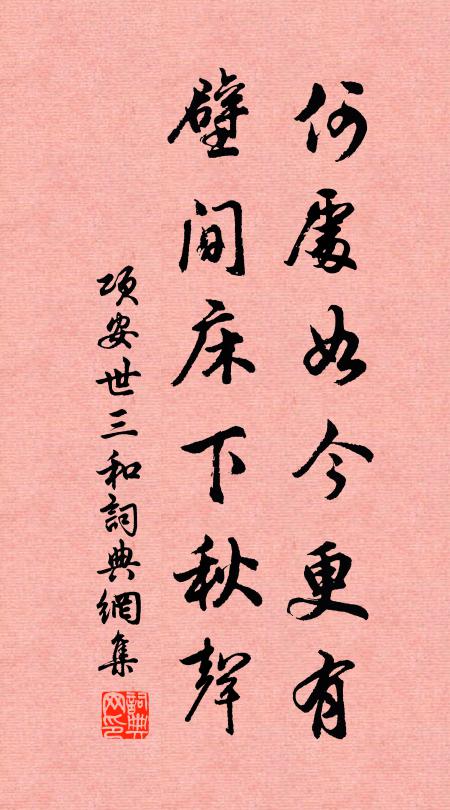 何處如今更有
壁間床下秋聲
項安世三和詞典網集
詞典网印